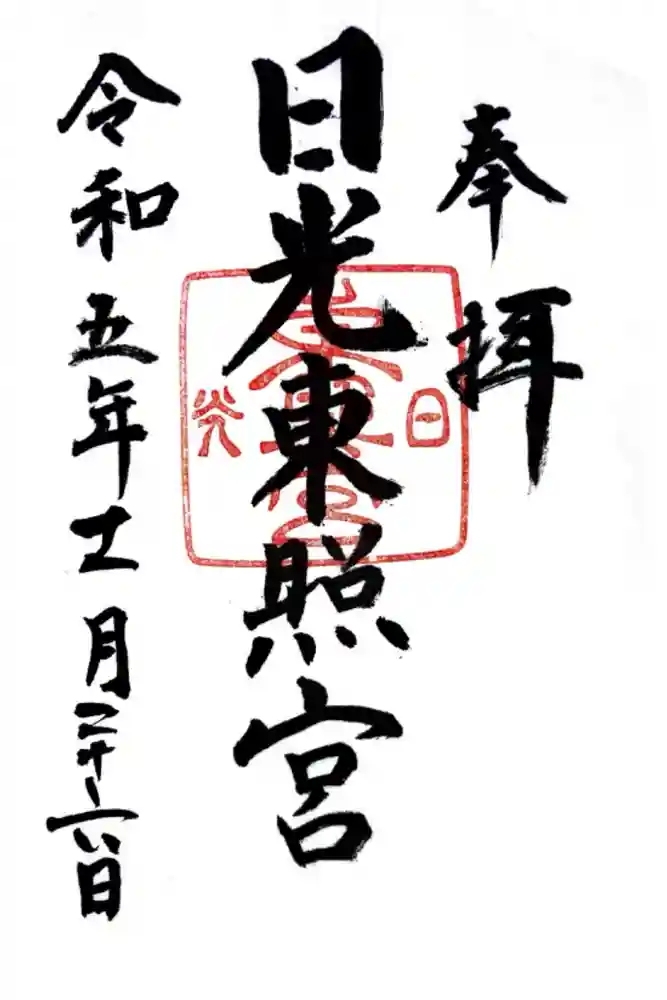 奉拝
日光東照宮
日
光
令和五年十一月二十六日